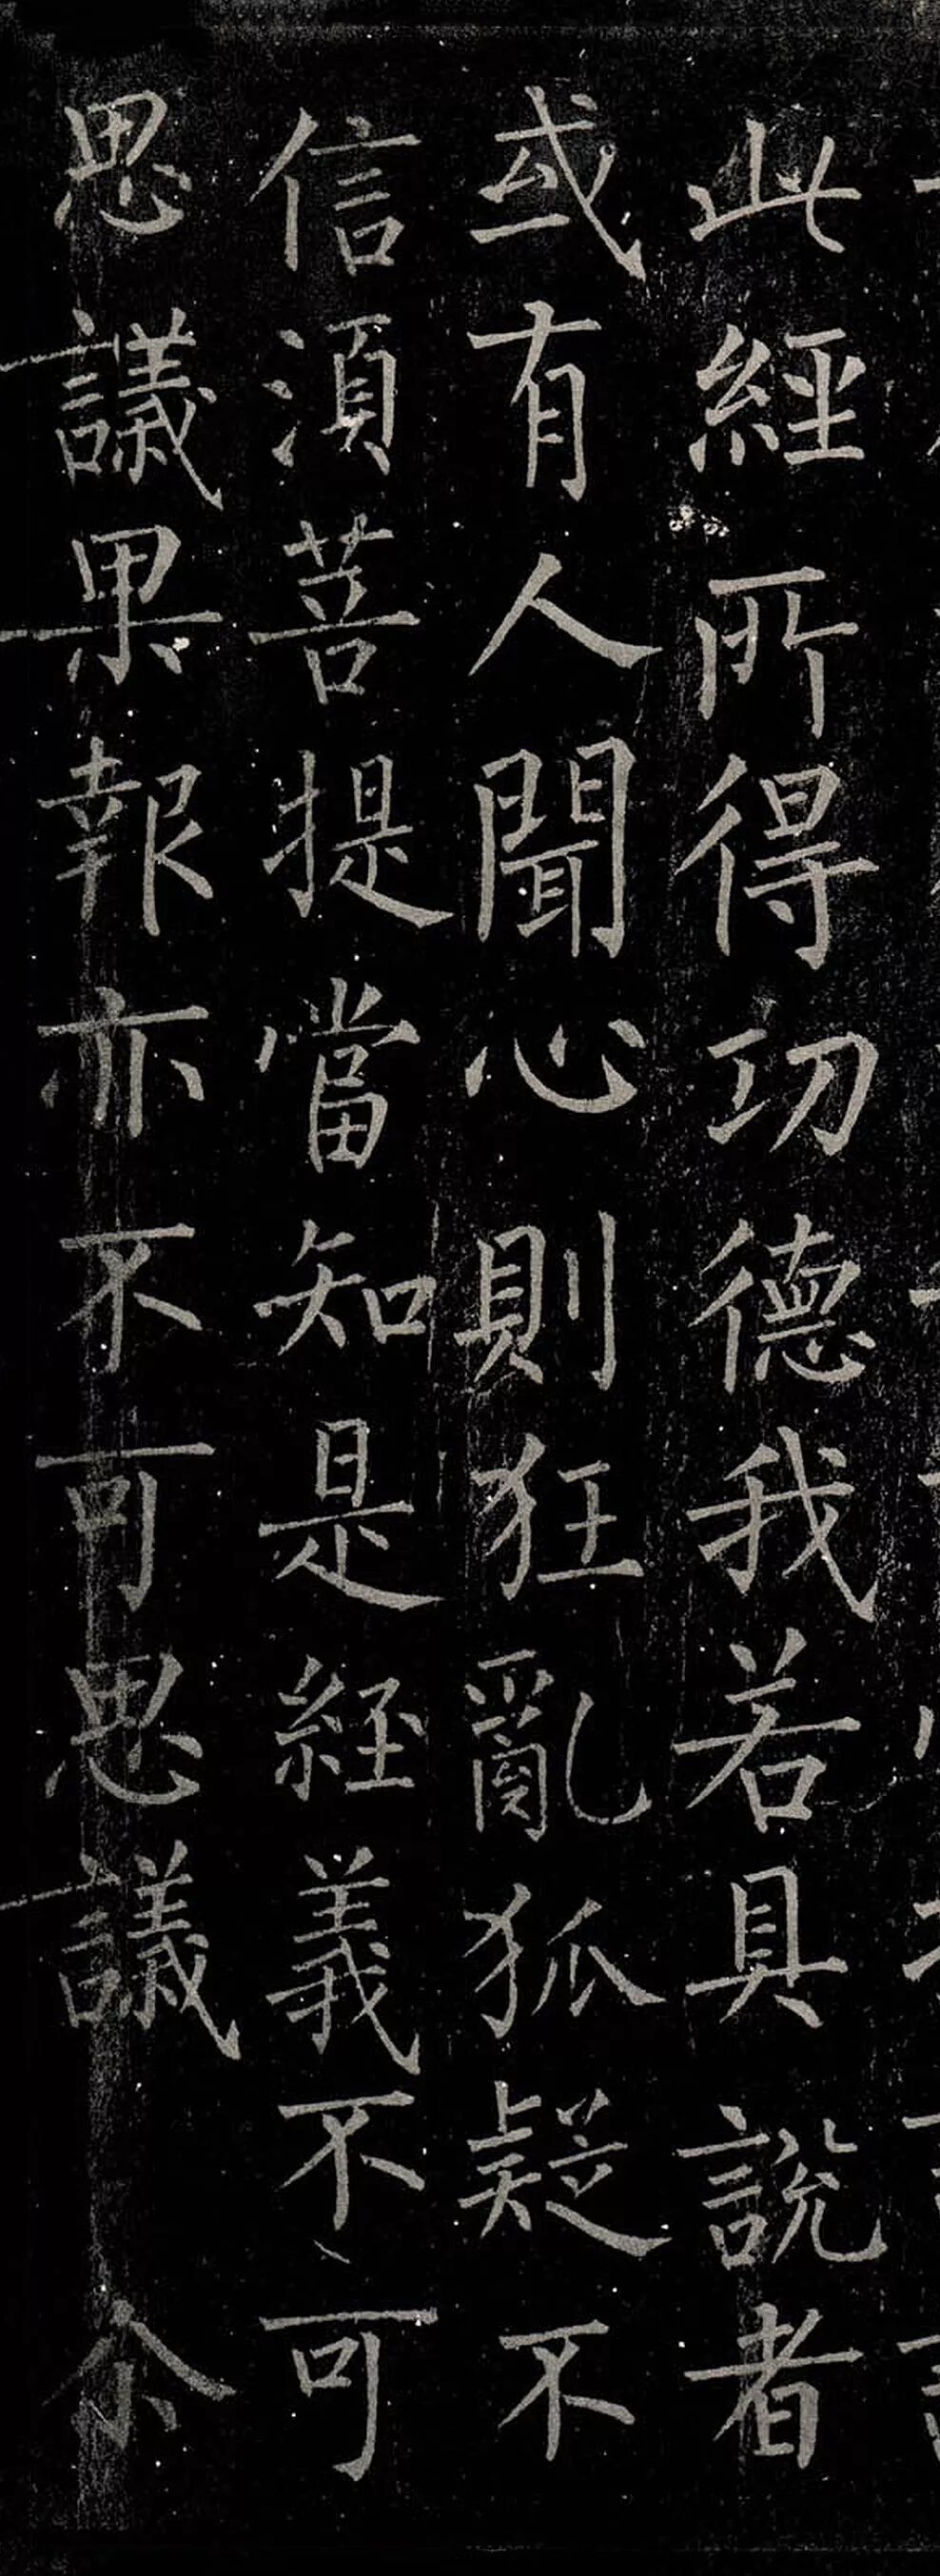 此經所得功德我若具說者
或有人聞心則狂亂狐疑不
信須菩提當知是經義不可
思議果報亦不可思議 尒